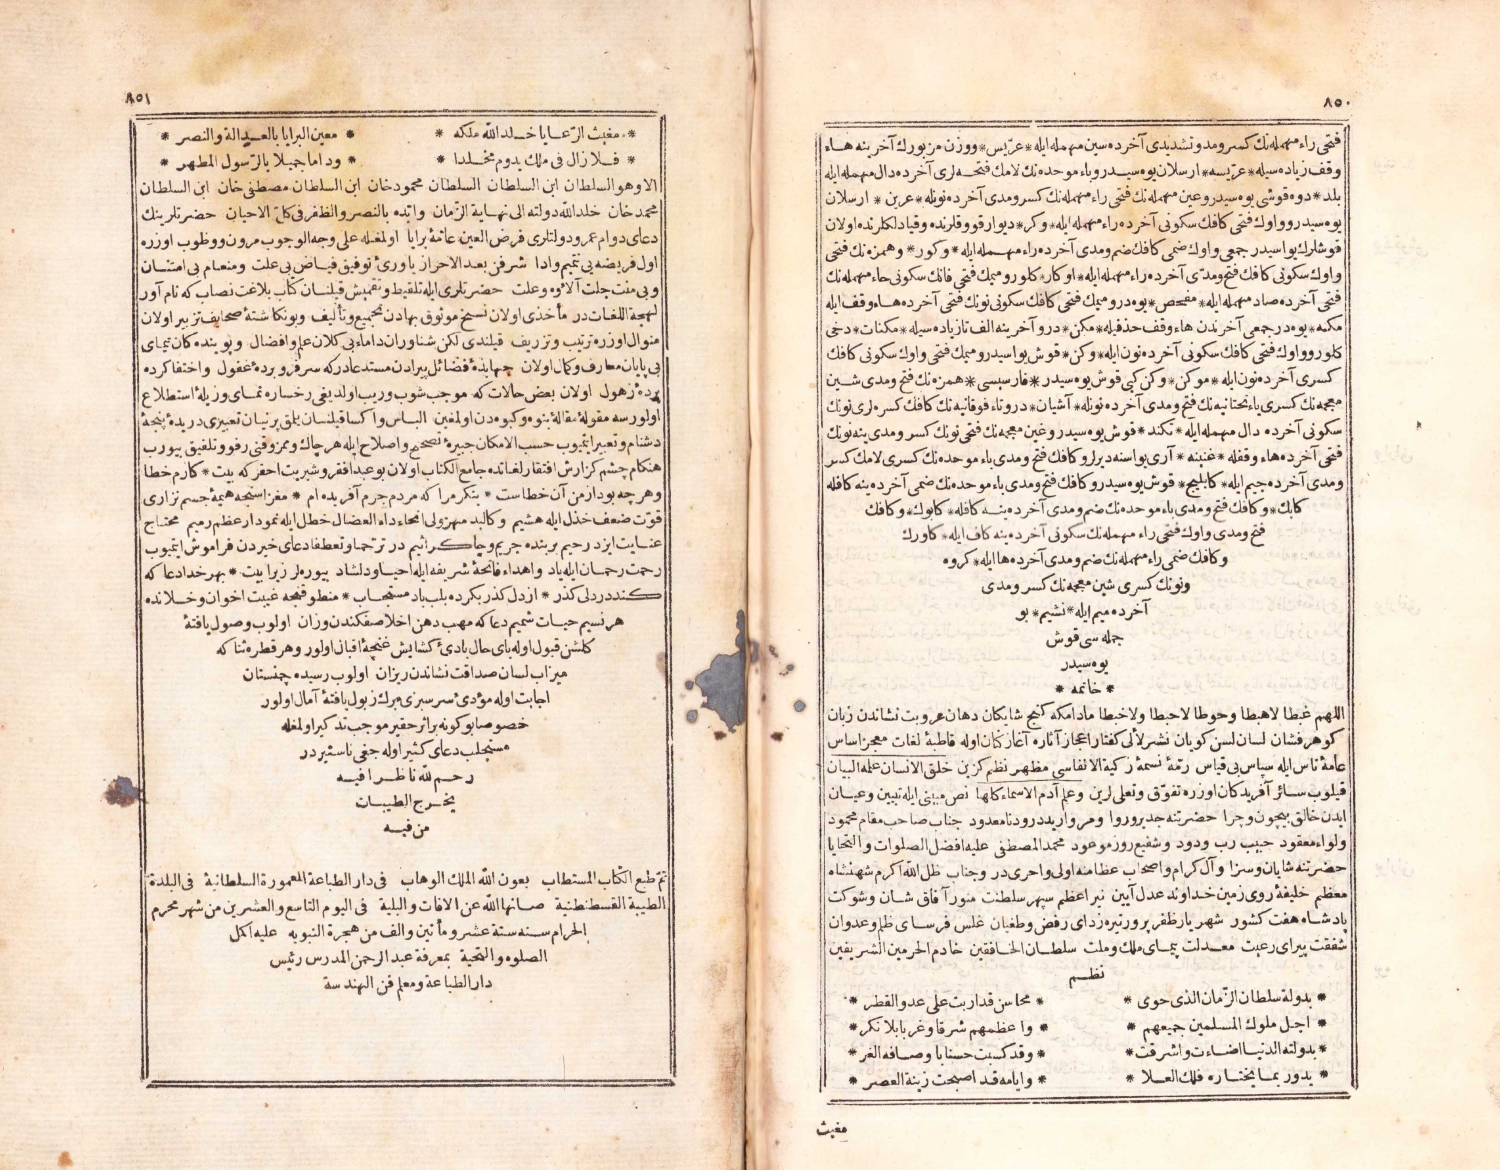 ٨٥٠
فتحى راء مهمله نك كسر ومد وتشديدى آخرده سين مهمله ايله * عريس * ووزن مزبورك آخرينه هاء
وقف زياده سيله * عريسه * ارسلان يوه سيدر وباء موحده نك لامك فتحه لرى آخرده دال مهمله ايله
بلد * دوه قوشى يوه سيدر وعين مهمله نك فتحى راء مهمله نك كسر ومدى آخرده نونله * عرين * ارسلان
يوه سيدر وواوك فتحى كافك سكونى آخرده راء مهمله ايله * وكر * ديوار قووقلرنده وقيادلكلرنده اولان
قوشلرك يواسيدر جمعى واوك ضمى كافك ضم ومدى آخرده راء مهمله ايله * وكور * وهمزه نك فتحى
واوك سكونى كافك فتح ومدى آخرده راء مهمله ايله * اوكار * كلور وميمك فتحى فانك سكونى حاء مهمله نك
فتحى آخرده صاد مهمله ايله * مفحص * يوه در وميمك فتحى كافك سكونى نونك فتحى آخرده هاء وقف ايله
مكنه * يوه در جمعى آخرندن هاء وقف حذفيله * مكن * در و آخرينه الف تا زياده سيله * مكنات * دخى
كلور وواوك فتحى كافك سكونى آخرده نون ايله * وكن * قوش يواسيدر وميمك فتحى واوك سكونى كافك
كسرى آخرده نون ايله * موكن * وكن كبى قوش يوه سيدر * فارسيسى * همزه نك فتح ومدى شين
معجمه نك كسرى ياء تحتانيه نك فتح ومدى آخرده نونله * آشيان * در وتاء فوقانيه نك كافك كسره لرى نونك
سكونى آخرده دال مهمله ايله * تكند * قوش يوه سيدر وغين معجمه نك فتحى نونك كسر ومدى ينه نونك
فتحى آخرده هاء وقفله * غنينه * آرى يواسنه ديرلر وكافك فتح ومدى باء موحده نك كسرى لامك كسر
ومدى آخرده جيم ايله * كابليج * قوش يوه سيدر وكافك فتح ومدى باء موحده نك ضمى آخرده ينه كافله
كابك * وكافك فتح ومدى باء موحده نك ضم ومدى آخرده ينه كافله * كابوك * وكافك
فتح ومدى واوك فتحى راء مهمله نك سكونى آخرده ينه كاف ايله * كاورك
وكافك ضمى راء مهمله نك ضم ومدى آخرده ها ايله * كروه
ونونك كسرى شين معجمه نك كسر ومدى
آخرده ميم ايله * نشيم * بو
جمله سى قوش
يوه سيدر
* خاتمه *
اللهم غبطا لاهبطا وحوطا لاحبطا ولاخبطا مادامكه كنج شايكان دهان عروبت نشاندن زبان
كوهر فشان لسان لسن كويان نشر لألى كفتار اعجاز آثاره آغاز كنان اوله قاطبة لغات معجز اساس
عامهٔ ناس ايله سپاس بى قياس رقهٔ نسمهٔ زكية الانفاسى مظهر نظم كزين خلق الانسان علمه البيان
قيلوب سائر آفريدكان اوزره تفوق وتعلى لرين وعلم آدم الاسماء كلها نص مبينى ايله تبيين وعيان
ايدن خالق بيچون وچرا حضرتنه جدير وروا ومرواريد درود نامعدود جناب صاحب مقام محمود
ولواء معقود حبيب رب ودود وشفيع روز موعود محمد المصطفى عليه افضل الصلوات والتحايا
حضرتنه شايان وسزا وآل كرام واصحاب عظامنه اولى واحرى در وجناب ظل الله اكرم شهنشاه
معظم خليفهٔ روى زمين خداوند عدل آيين نير اعظم سپهر سلطنت منور آفاق شان وشوكت
پادشاه هفت كشور شهريار ظفرپرور تيره زداى رفض وطغيان غلس فرساى ظلم وعدوان
شفقت پيراى رعيت معدلت پيماى ملك وملت سلطان الخافقين خادم الحرمين الشريفين
نظم
* بدولة سلطان الزمان الذى حوى * * محاسن قد اربت على عدو القطر *
* اجل ملوك المسلمين جميعهم * * واعظمهم شرقا وغربا بلا نكر *
* بدولته الدنيا اضاءت واشرقت * * وقد كسبت حسنا با وصافه الغر *
* يدور بما يختاره فلك العلا * * وايامه قد اصبحت زينة العصر *
مغيث
٨٥١
* مغيث الرعايا خلد الله ملكه * * معين البرايا بالعدالة والنصر *
* فلا زال فى ملك يدوم مخلدا * * ودام جميلا بالرسول المطهر *
الا وهو السلطان ابن السلطان السلطان محمود خان ابن السلطان مصطفى خان ابن السلطان
محمد خان خلد الله دولته الى نهاية الزمان وايده بالنصر والظفر فى كل الاحيان حضرتلرينك
دعاى دوام عمر ودولتلرى فرض العين عامهٔ برايا اولمغله على وجه الوجوب مرون ووظوب اوزره
اول فريضه بى تتميم وادا شرفن بعد الاحراز ياورئ توفيق فياض بى علت ومنعام بى امتنان
وبى منت جلت آلاؤه وعلت حضرتلرى ايله تلقيط وتقميش قيلنان كتاب بلاغت نصاب كه نام آور
لهجة اللغات در مأخذى اولان نسخ موثوق بهادن تجميع وتأليف وبونكاشتهٔ صحايف تزبير اولان
منوال اوزره ترتيب وتزريف قيلندى لكن شناوران داماء بى كلان علم وافضال وپوينده كان تيماى
بى پايان معارف وكمال اولان جهابذهٔ فضائل پيرادن مستدعادر كه سرفرو بردهٔ غفول واختفا كرده
پردهٔ زهول اولان بعض حالات كه موجب شوب وريب اولديغى رخساره نماى وزيلهٔ استطلاع
اولورسه مقولهٔ مقاله بنوه وكبوه دن اولمغين الباس واكسا قيلنسان يلمق پرنيان تعبيرى دريدهٔ پنجهٔ
دشنام وتعبير ايتميوب حسب الامكان جبيرهٔ تصحيح واصلاح ايله هر چاك ومزوقنى رفو وتلفيق بيورب
هنكام چشم كزارش افتقار لغاتده جامع الكتاب اولان بو عبد افقر وشيريت احقر كه بيت * كازم خطا
وهرچه بود از من آن خطاست * بنكر مرا كه مردم جرم آفريده ام * مغز استجه هيمهٔ جسم نزارى
قوت ضعف خذل ايله هشيم وكالبد مهزولى انحاء داء العضال خطل ايله نمودار عظم رميم محتاج
عنايت ايزد رحيم بر بنده جريم وچاكر اثيم در ترحما وتعطفا دعاى خيردن فراموش ايتميوب
رحمت رحمان ايله ياد واهداء فاتحهٔ شريفه ايله احيا ودلشاد بيوره لر زيرا بيت * بهر خدا دعا كه
كند در دلى كذر * از دل كذر بكرده بلب باد مستجاب * منطوقنجه غيبت اخوان وخلانده
هر نسيم حيات شميم دعا كه مهب دهن اخلاصفكندن وزان اولوب وصول يافتهٔ
كلشن قبول اوله باى حال بادئ كشايش غنچهٔ اقبال اولور وهر قطره ثنا كه
ميزاب لسان صداقت نشاندن ريزان اولوب رسيده چمنستان
اجابت اوله مؤدئ سرسبزى برك زبول يافتهٔ آمال اولور
خصوصا بو كونه براثر حقير موجب تذكير اولمغله
مستجلب دعاى كثير اوله جغى ناستيردر
رحم لله ناظرا فيه
يخرج الطيبات
من فيه
تم طبع الكتاب المستطاب بعون الله الملك الوهاب فى دار الطباعة المعمورة السلطانية فى البلدة
الطيبة القسطنطنية صانها الله عن الافات والبلية فى اليوم التاسع والعشرين من شهر محرم
الحرام سنه ستة عشر ومأتين والف من هجرة النبويه عليه اكمل
الصلوه والتحية بمعرفة عبد الرحمن المدرس رئيس
دار الطباعة ومعلم فن الهندسة